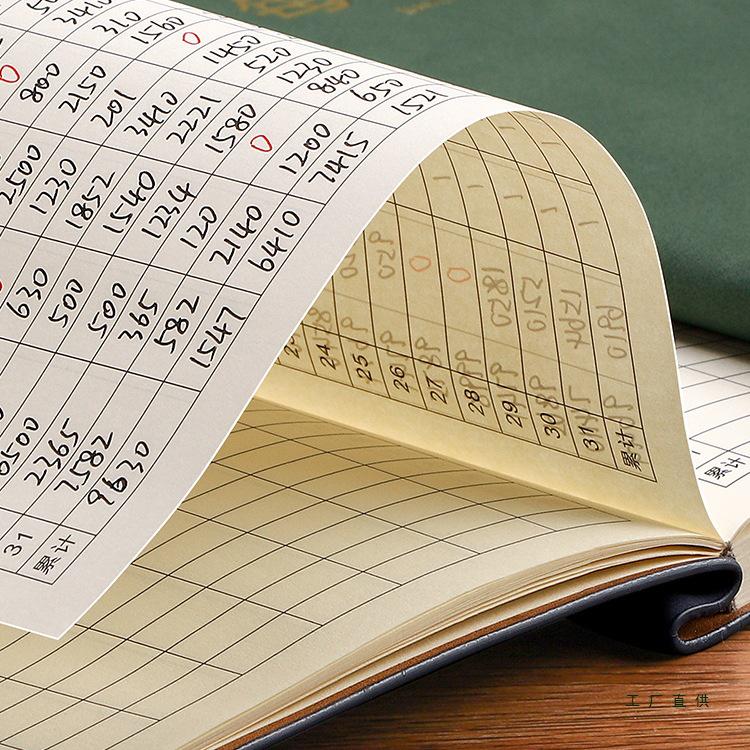 0 3410
800 310
2500 2150 1560
1230 201 0
630 1852 3410 1450
500 1540 2221 520
500 1234 1580 1230
2365 365 120 0 840
31 7582 582 2140 1200 650
累计 9630 1547 6410 7415 1521
24
25
26
27
28
29
30
31
累计
累计
工厂直供